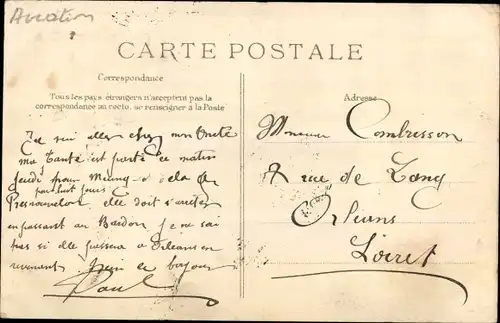 Aviation
CARTE POSTALE
Correspondance
Tous les pays étrangers n'acceptent pas la
correspondance au recto, se renseigner à la Poste
Adresse
Je suis aller chez mon Oncle
ma Tante est partie ce matin
jeudi pour Meung
par huit jours
elle doit s'arrêter
en passant au Bardon je ne sai
pas si elle passera a Orléans en
revenant
bonjour
Paul
Monsieur Combresson
8 rue de
Orléans
Loiret